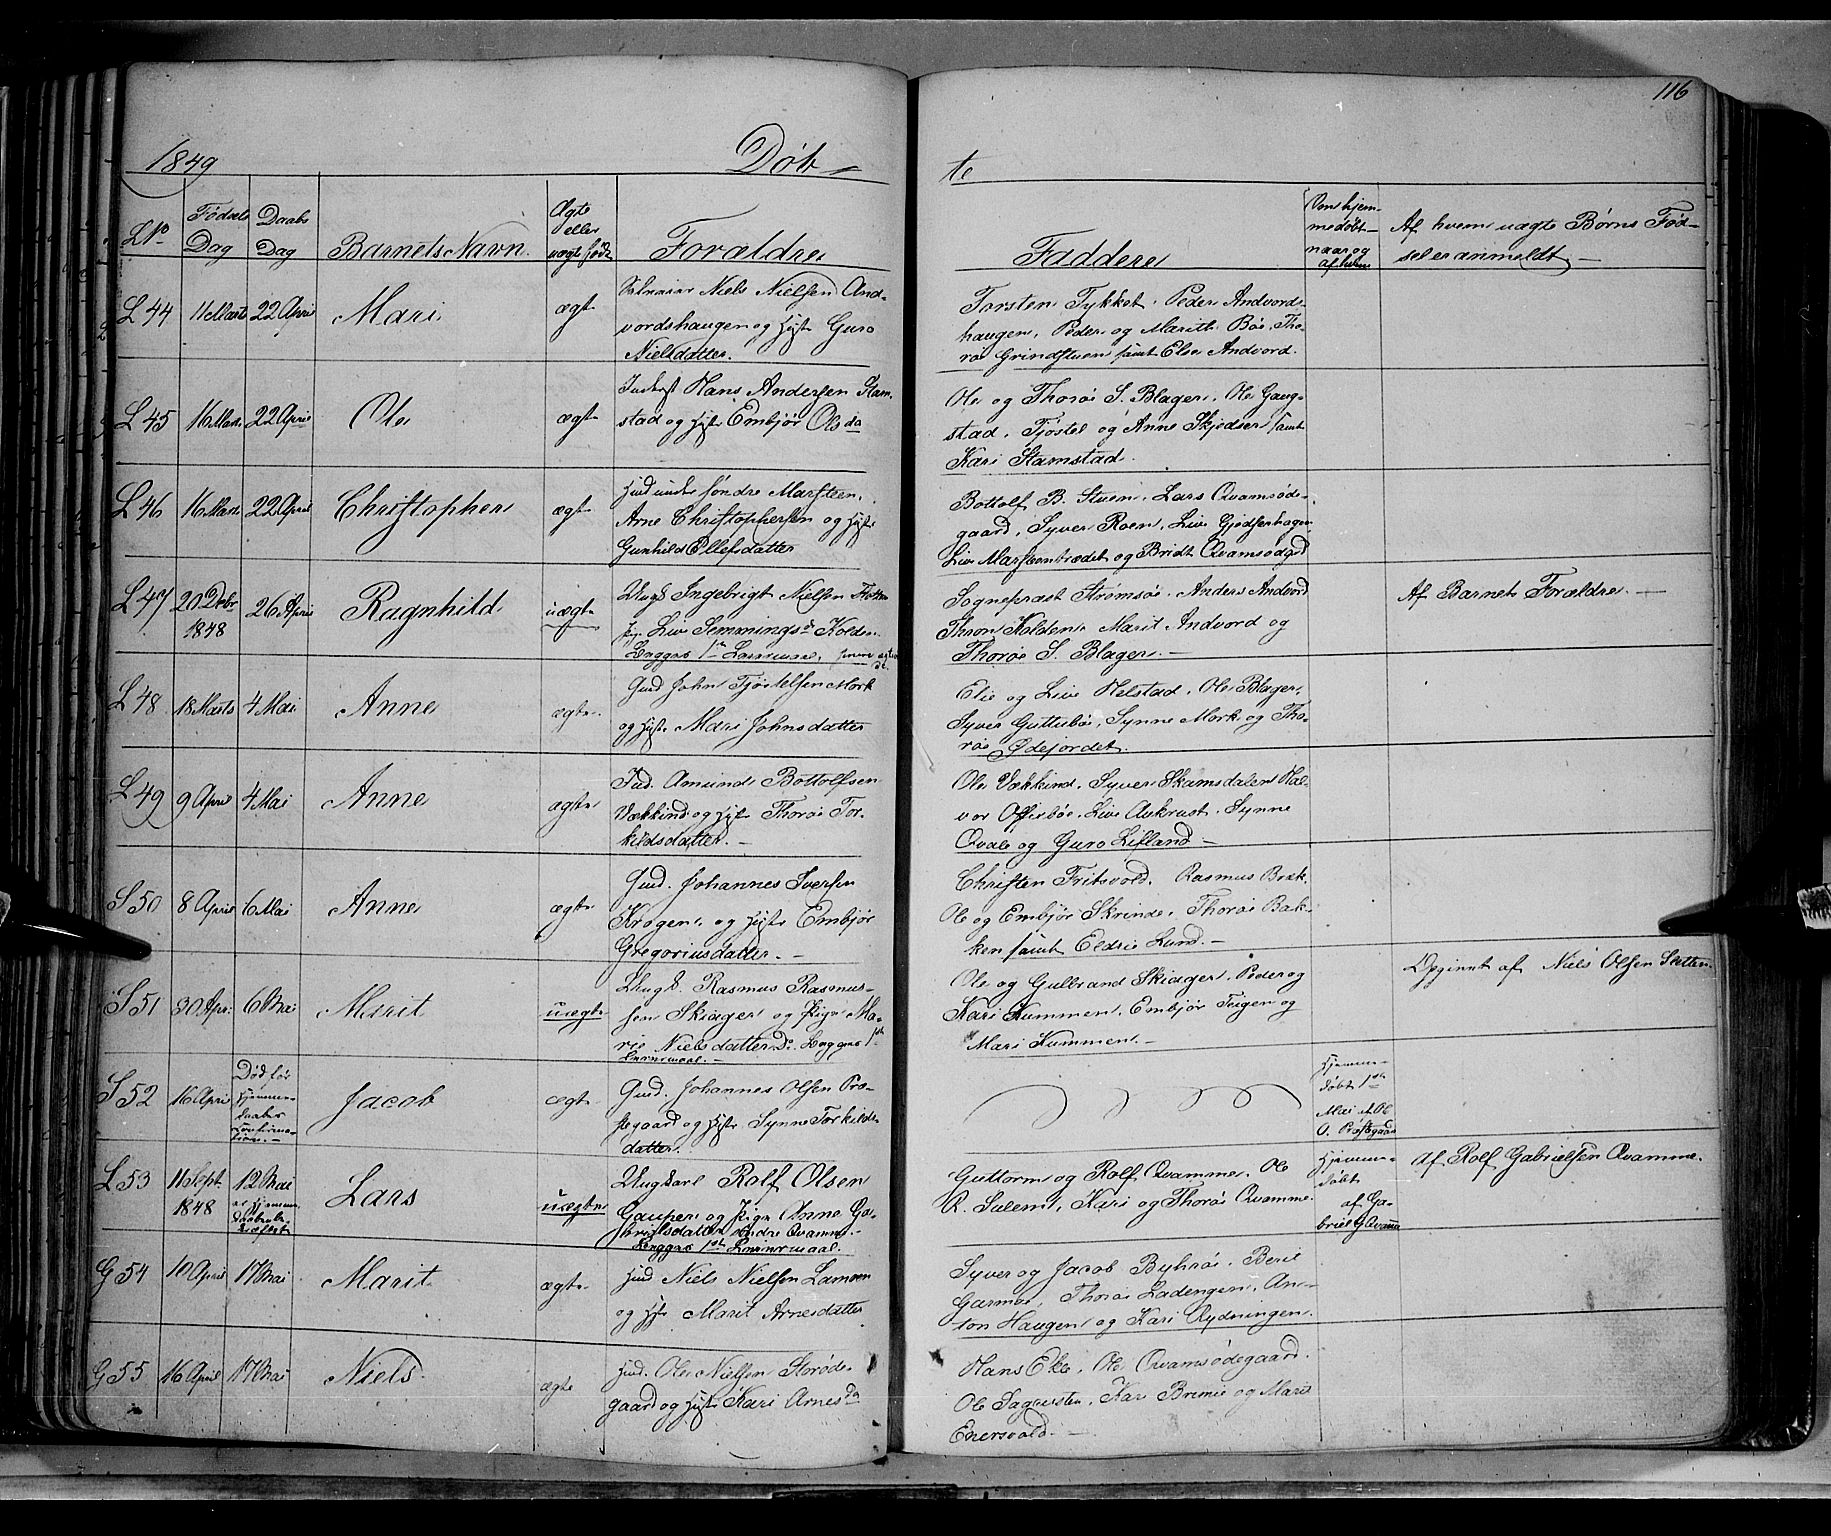 116
1849 Døb-
te
L No Fødsels Dag Daabs Dag Barnets Navn Ægte eller uægte født Forældre
Faddere Om hjemmedøbt naar og af hvem Af hvem uægte Børns Fødsel er anmeldt
L 44 11 Marts 22 April Mari ægte Niels Nielsen And-
vordshaugen og Hust Guro
Nielsdatter.
Torsten Tykket. Peder Andvords-
haugen, Peder og Marith Bøe, Tho-
rø Grindstuen samt Else Andvord.
L 45 16 Marts 22 April Ole ægte Inderst Hans Andersen Stam-
stad og Hust Embjør Olsda
Ole og Thorø S. Blager. Ole Gaug-
stad. Tjøstel og Anne Skjedser samt
Kari Stamstad.
L 46 16 Marts 22 April Christopher ægte Huusd under søndre Marsteen.
Arne Christophersen og Hust
Gunhild Ellefsdatter
Bottolf B. Stuen. Lars Qvamsøde-
gaard. Syver Roen. Live Gjedserhagen
Live Marsteentrædet og Bridt Qvamsødgd
L 47 20 Debr 1848 26 April Ragnhild uægte Ungk Ingebrigt Nielsen
Pige Live Semmingsd Kolden.
Begges 1ste Leiermaal,
Sogneprest Strømsøe. Anders Andvord
Thron Kolden. Marit Andvord og
Thorø S. Blager. -
Af Barnets Forældre. -
L 48 18 Marts 4 Mai Anne ægte Gmd John Tjøstelsen Mork
og Hust Mari Johnsdatter
Elie og Live Helstad. Ole Blager,
Syver Guttubøe, Synne Mork og Tho-
rø Ødejordet.
L 49 9 April 4 Mai Anne ægte Ind. Amund Bottolfsen
Vækkind og Hust Thorø Tor-
kildsdatter. -
Ole Vækkind. Syver Skamsdalen Hal-
vor Offerbøe. Live Aukrust. Synne
Qvale og Guro Lifland. -
S 50 8 April 6 Mai Anne ægte Gmd. Johannes Iversen
Krogen, og Hust Embjør
Gregoriusdatter. -
Christen Fritsvold. Rasmus Bræk.
Ole og Embjør Skrinde. Thorø Bak-
ken samt Eldrie Lund. -
S 51 30 Apr: 6 Mai Marit uægte Ungk. Rasmus Rasmus-
sen Skiager og Pige Ma-
rie Nielsdatter Do. Begges 1ste
Leiermaal. -
Ole og Gulbrand Skiager. Peder og
Kari Kummen. Embjør Teigen og
Mari Kummen. -
Opgivet af Niels Olsen
S 52 16 April Død før Hjemme-
daabs
Confirma-
tion. -
Jacob ægte Gmd. Johannes Olsen Præ-
stegaard og Hust Synne Torkilds-
datter.
Hjemme-
døbt 1ste
Mai af Ol
O. Præstgaar
L 53 11 Sept 1848 12 Mai Lars uægte Ungkarl Rolf Olsen
Gauper og Pige Anne Ga-
brielsdatter Qvamme. -
Begges 1ste Leiermaal.
Guttorm og Rolf Qvamme. Ole
R. Sulem, Kari og Thorø Qvamme.
Hjemme-
døbt
af Ga-
briel G Qvamme
Af Rolf Gabrielsen Qvamme.
G 54 10 April 17 Mai Marit ægte Huusd Niels Nielsen Lamoen
og Hust Marit Arnesdatter
Syver og Jacob Byhrøe. Berit
Garmoe, Thorø Ladengen, An-
ton Haugen og Kari Rydningen.
G 55 16 April 17 Mai Niels ægte Huusd. Ole Nielsen Strøde-
gaard og Hust Kari Arnesda
Hans Ekle. Ole Qvamsødegaard.
Ole Sagersten. Kari Bremie og Marit
Enersvold. -